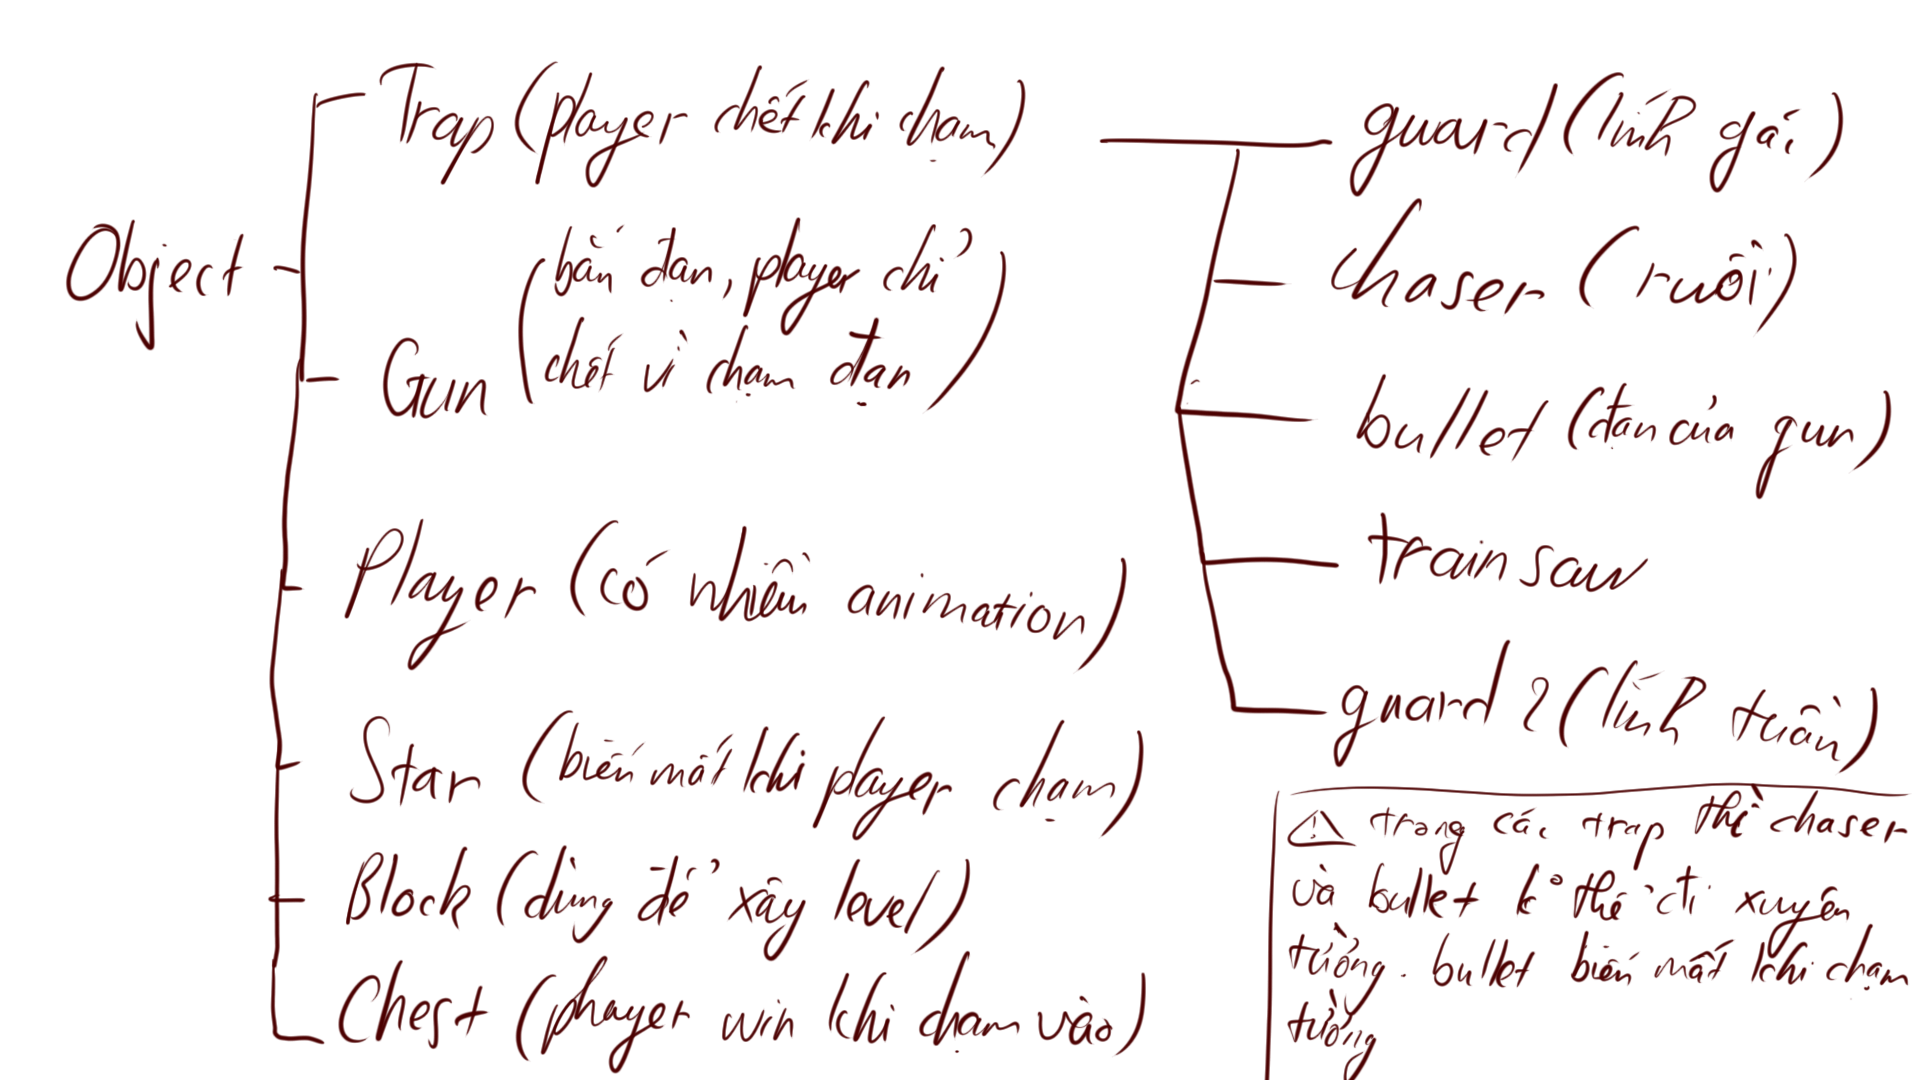 Object
Trap (player chết khi chạm)
Gun (bắn đạn, player chỉ
chết vì chạm đạn)
Player (có nhiều animation)
Star (biến mất khi player chạm)
Block (dùng để xây level)
Chest (phayer win khi chạm vào)
guard (lính gác)
chaser (ruồi)
bullet (đạn của gun)
train saw
guard 2 (lính tuần)
⚠ trong các trap thì chaser
và bullet k° thể đi xuyên
tường. bullet biến mất khi chạm
tường